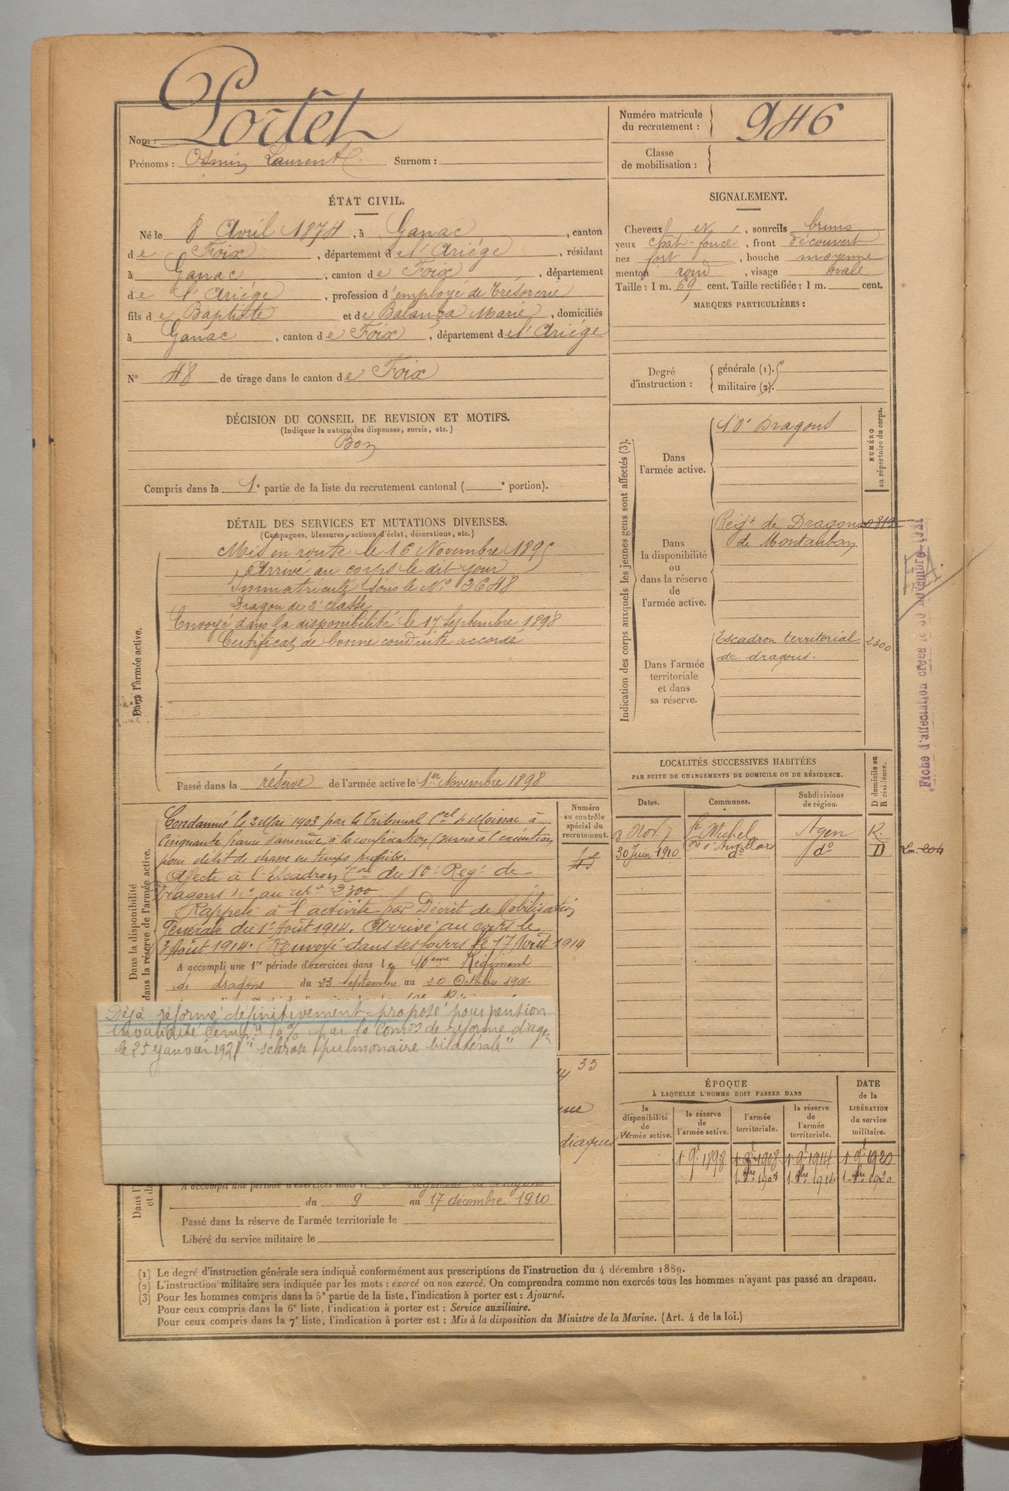 Nom : Portet
Prénoms : Osmin Laurent Surnom :
Numéro matricule du recrutement : 946
Classe de mobilisation :
ÉTAT CIVIL.
Né le 8 Avril 1874, à Ganac, canton
de Foix, département de l'Ariège, résidant
à Ganac, canton de Foix, département
de l'Ariège, profession d'employé de trésorerie
fils de Baptiste et de Balança Marie, domiciliés
à Ganac, canton de Foix, département de l'Ariège
N° 48 de tirage dans le canton de Foix
DÉCISION DU CONSEIL DE REVISION ET MOTIFS.
(Indiquer la nature des dispenses, sursis, etc.)
Bon
Compris dans la 1e partie de la liste du recrutement cantonal ( e portion).
DÉTAIL DES SERVICES ET MUTATIONS DIVERSES.
(Campagnes, blessures, actions d'éclat, décorations, etc.)
Dans l'armée active.
Mis en route le 16 Novembre 1895
Arrivé au corps le dit jour
Immatriculé sous le N° 2648
Dragon de 2e classe
Envoyé dans la disponibilité le 17 Septembre 1898
Certificat de bonne conduite accordé
Passé dans la réserve de l'armée active le 1er Novembre 1898
Dans la disponibilité
dans la réserve de l'armée active.
Condamné le 2 Mai 1903 par le Tribunal Cel de à
Cinquante francs d'amende, à la confiscation,
pour délit de chasse en temps prohibé.
Affecté à l'Escadron Tal du 10e Regt de
Dragons no au 2300
Rappelé à l'activité par Décret de Mobilisation
Générale du 1er Août 1914. Arrivé au corps le
3 Août 1914. Renvoyé dans ses foyers le 17 Août 1914
A accompli une 1re période d'exercices dans le 10eme Régiment
de dragons du 23 septembre au 20 Octobre 1901
Déjà réformé définitivement proposé pour pension
invalidité 10% par la Comon de réforme d'Agen
le 25 janvier 1921 "sclérose pulmonaire bilatérale"
du 9 au 17 décembre 1910
Passé dans la réserve de l'armée territoriale le
Libéré du service militaire le
SIGNALEMENT.
Cheveux, sourcils bruns
yeux chât-foncé, front découvert
nez fort, bouche moyenne
menton rond, visage ovale
Taille : 1 m. 69 cent. Taille rectifiée : 1 m. cent.
MARQUES PARTICULIÈRES :
Degré d'instruction : générale (1).
militaire (2).
Indication des corps auxquels les jeunes gens sont affectés (3).
NUMÉRO au répertoire du corps.
Dans l'armée active.
10e Dragons
Dans la disponibilité ou dans la réserve de l'armée active.
Regt de Dragons
de Montauban
Dans l'armée territoriale et dans sa réserve.
Escadron territorial 2300
de dragons.
Fiche d'affectation créée le 30 novembre 1921
LOCALITÉS SUCCESSIVES HABITÉES
PAR SUITE DE CHANGEMENTS DE DOMICILE OU DE RÉSIDENCE.
D domicile ou R résidence.
Numéro au contrôle spécial du recrutement.
Dates. Communes. Subdivisions de région.
St Michel Agen R.
30 Juin 1910 do do D
ÉPOQUE
À LAQUELLE L'HOMME DOIT PASSER DANS
DATE de la LIBÉRATION du service militaire.
la disponibilité de l'armée active.
la réserve de l'armée active.
l'armée territoriale.
la réserve de l'armée territoriale.
1 9e 1898 1 9e 1908 1 9e 1914 1 9e 1920
(1) Le degré d'instruction générale sera indiqué conformément aux prescriptions de l'instruction du 4 décembre 1889.
(2) L'instruction militaire sera indiquée par les mots : exercé ou non exercé. On comprendra comme non exercés tous les hommes n'ayant pas passé au drapeau.
(3) Pour les hommes compris dans la 5e partie de la liste, l'indication à porter est : Ajourné.
Pour ceux compris dans la 6e liste, l'indication à porter est : Service auxiliaire.
Pour ceux compris dans la 7e liste, l'indication à porter est : Mis à la disposition du Ministre de la Marine. (Art. 4 de la loi.)